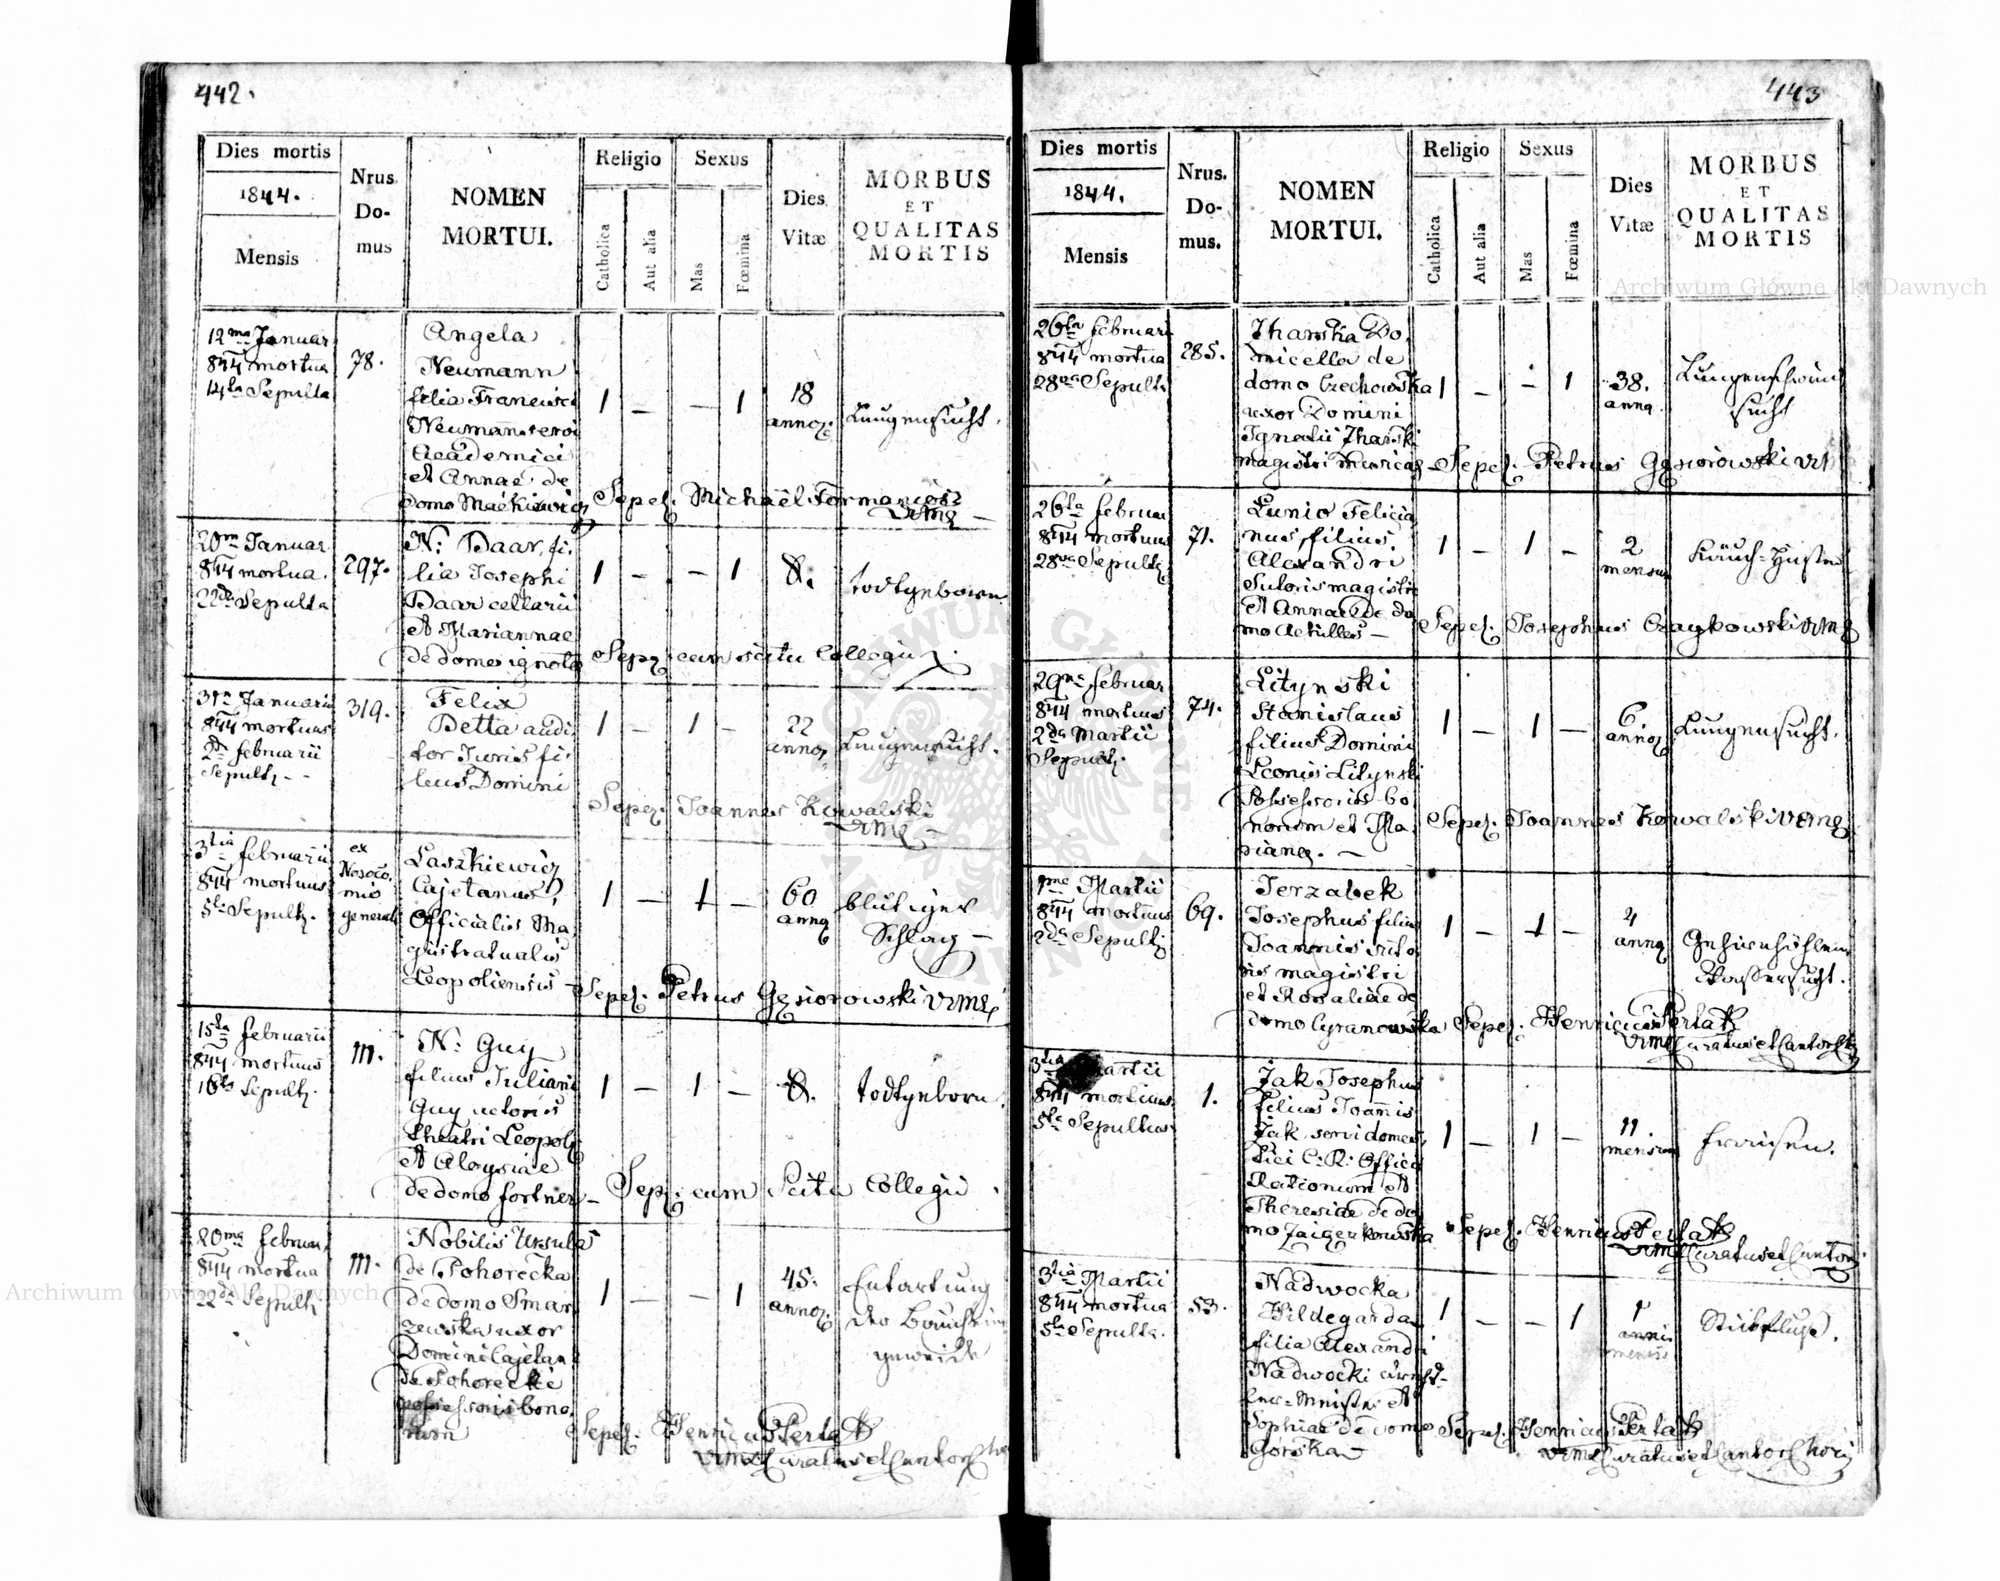 442.
Dies mortis
1844.
Mensis
Nrus.
Do-
mus
NOMEN
MORTUI.
Religio
Catholica
Aut alia
Sexus
Mas
Fœmina
Dies
Vitæ
MORBUS
ET
QUALITAS
MORTIS
12ma Januar
844 mortua
14ta Sepulta
78.
Angela
Neumann
filia Francisci
Neumann
Academici
et Annae de
domo Mackiewicz
1 — — 1
18
annoz.
Lungensucht.
Sepel. Michaël Formaniosz
VRMG —
20ma Januar
844 mortua.
22da Sepulta
297.
N: Baar, fi-
lia Josephi
Baar cellarii
et Mariannae
de domo ignota
1 — — 1
0.
todtgeboren
Sepz. cum scitu Collegii.
31a Januarii
844 mortuus
2da februarii
Sepult. - -
319.
Felix
Betta audi-
tor Juris fi-
lius Domini
1 — 1 —
22
annoz
Lungensucht.
Sepez. Joannes Kowalski
VRMG —
3tia februarii
844 mortuus
5ta Sepultz.
ex
Nosoco-
mio
generali
Laszkiewicz
Cajetanus,
Officialis Ma-
gistratualis
Leopoliensis —
1 — 1 —
60
annoz
blutiger
Schlag —
Sepel. Petrus Gąsiorowski VRMG
15ta februarii
844 mortuus
16ta Sepultz.
111.
N: Guy
filius Juliani
Guy actoris
theatri Leopol.
et Aloysiae
de domo fortner —
1 — 1 —
0.
todtgeborn.
Sepz. cum Scitu Collegii.
20ma februar.
844 mortua
22da Sepultz
111.
Nobilis Ursula
de Pohorecka
de domo Smar-
zewska uxor
Domini Cajetan
de Pohorecki
possessoris bono-
rum
1 — — 1
45.
annoz.
Entartung
der Bauchein
geweide
Sepel. Henricus Pertak
VRMG Curatus et Cantor
443
Dies mortis
1844.
Mensis
Nrus.
Do-
mus.
NOMEN
MORTUI.
Religio
Catholica
Aut alia
Sexus
Mas
Fœmina
Dies
Vitæ
MORBUS
ET
QUALITAS
MORTIS
26ta februari
844 mortua
28va Sepulta
285.
Tharska Do-
micella de
domo Czechowska
uxor Domini
Ignatii Tharski
magistri musicae
1 — — 1
38.
anno.
Lungenschwind
sucht
Sepel. Petrus Gąsiorowski VR
26ta februar
844 mortuus
28va Sepultz
71.
Lunio Felicia-
nus, filius
Alexandri
Sutoris magistri
et Annae de do-
mo Achilles —
1 — 1 —
2
mensiu
Keuch-Husten
Sepel. Josephus Czaykowski VRMG
29na februar
844 mortuus
2da Martii
Sepultz.
74.
Litynski
Stanislaus
filius Domini
Leonis Litynski
Possessoris bo-
norum et Ma-
rianz. —
1 — 1 —
6
annoz
Lungensucht.
Sepel. Joannes Kowalski VRMG
1ma Martii
844 mortuus
2da Sepultz
69.
Jerzabek
Josephus filius
Joannis suto-
ris magistri
et Rosaliae de
domo Cyranowska
1 — 1 —
4
annoz
Gehirnhöhlen
Wassersucht.
Sepel. Henricus Pertak
VRMG Curatus et Cantor
3tia Martii
844 mortuus
5ta Sepultus
1.
Jak Josephus
filius Joannis
Jak servi domes-
tici C: R: Officii
Rationum et
Theresiae de do-
mo Zaigerkowska
1 — 1 —
11
mensium
fraisen.
Sepel. Henricus Pertak
VRMG Curatus et Cantor
3tia Martii
844 mortua
5ta Sepulta.
53.
Nadwocka
Hildegarda
filia Alexandri
Nadwocki
et
Sophiae de domo
Gorska —
1 — — 1
1
anni
mensis
Stickfluß.
Sepel. Henricus Pertak
VRMG Curatus et Cantor Chori
Archiwum Główne Akt Dawnych
Archiwum Główne Akt Dawnych